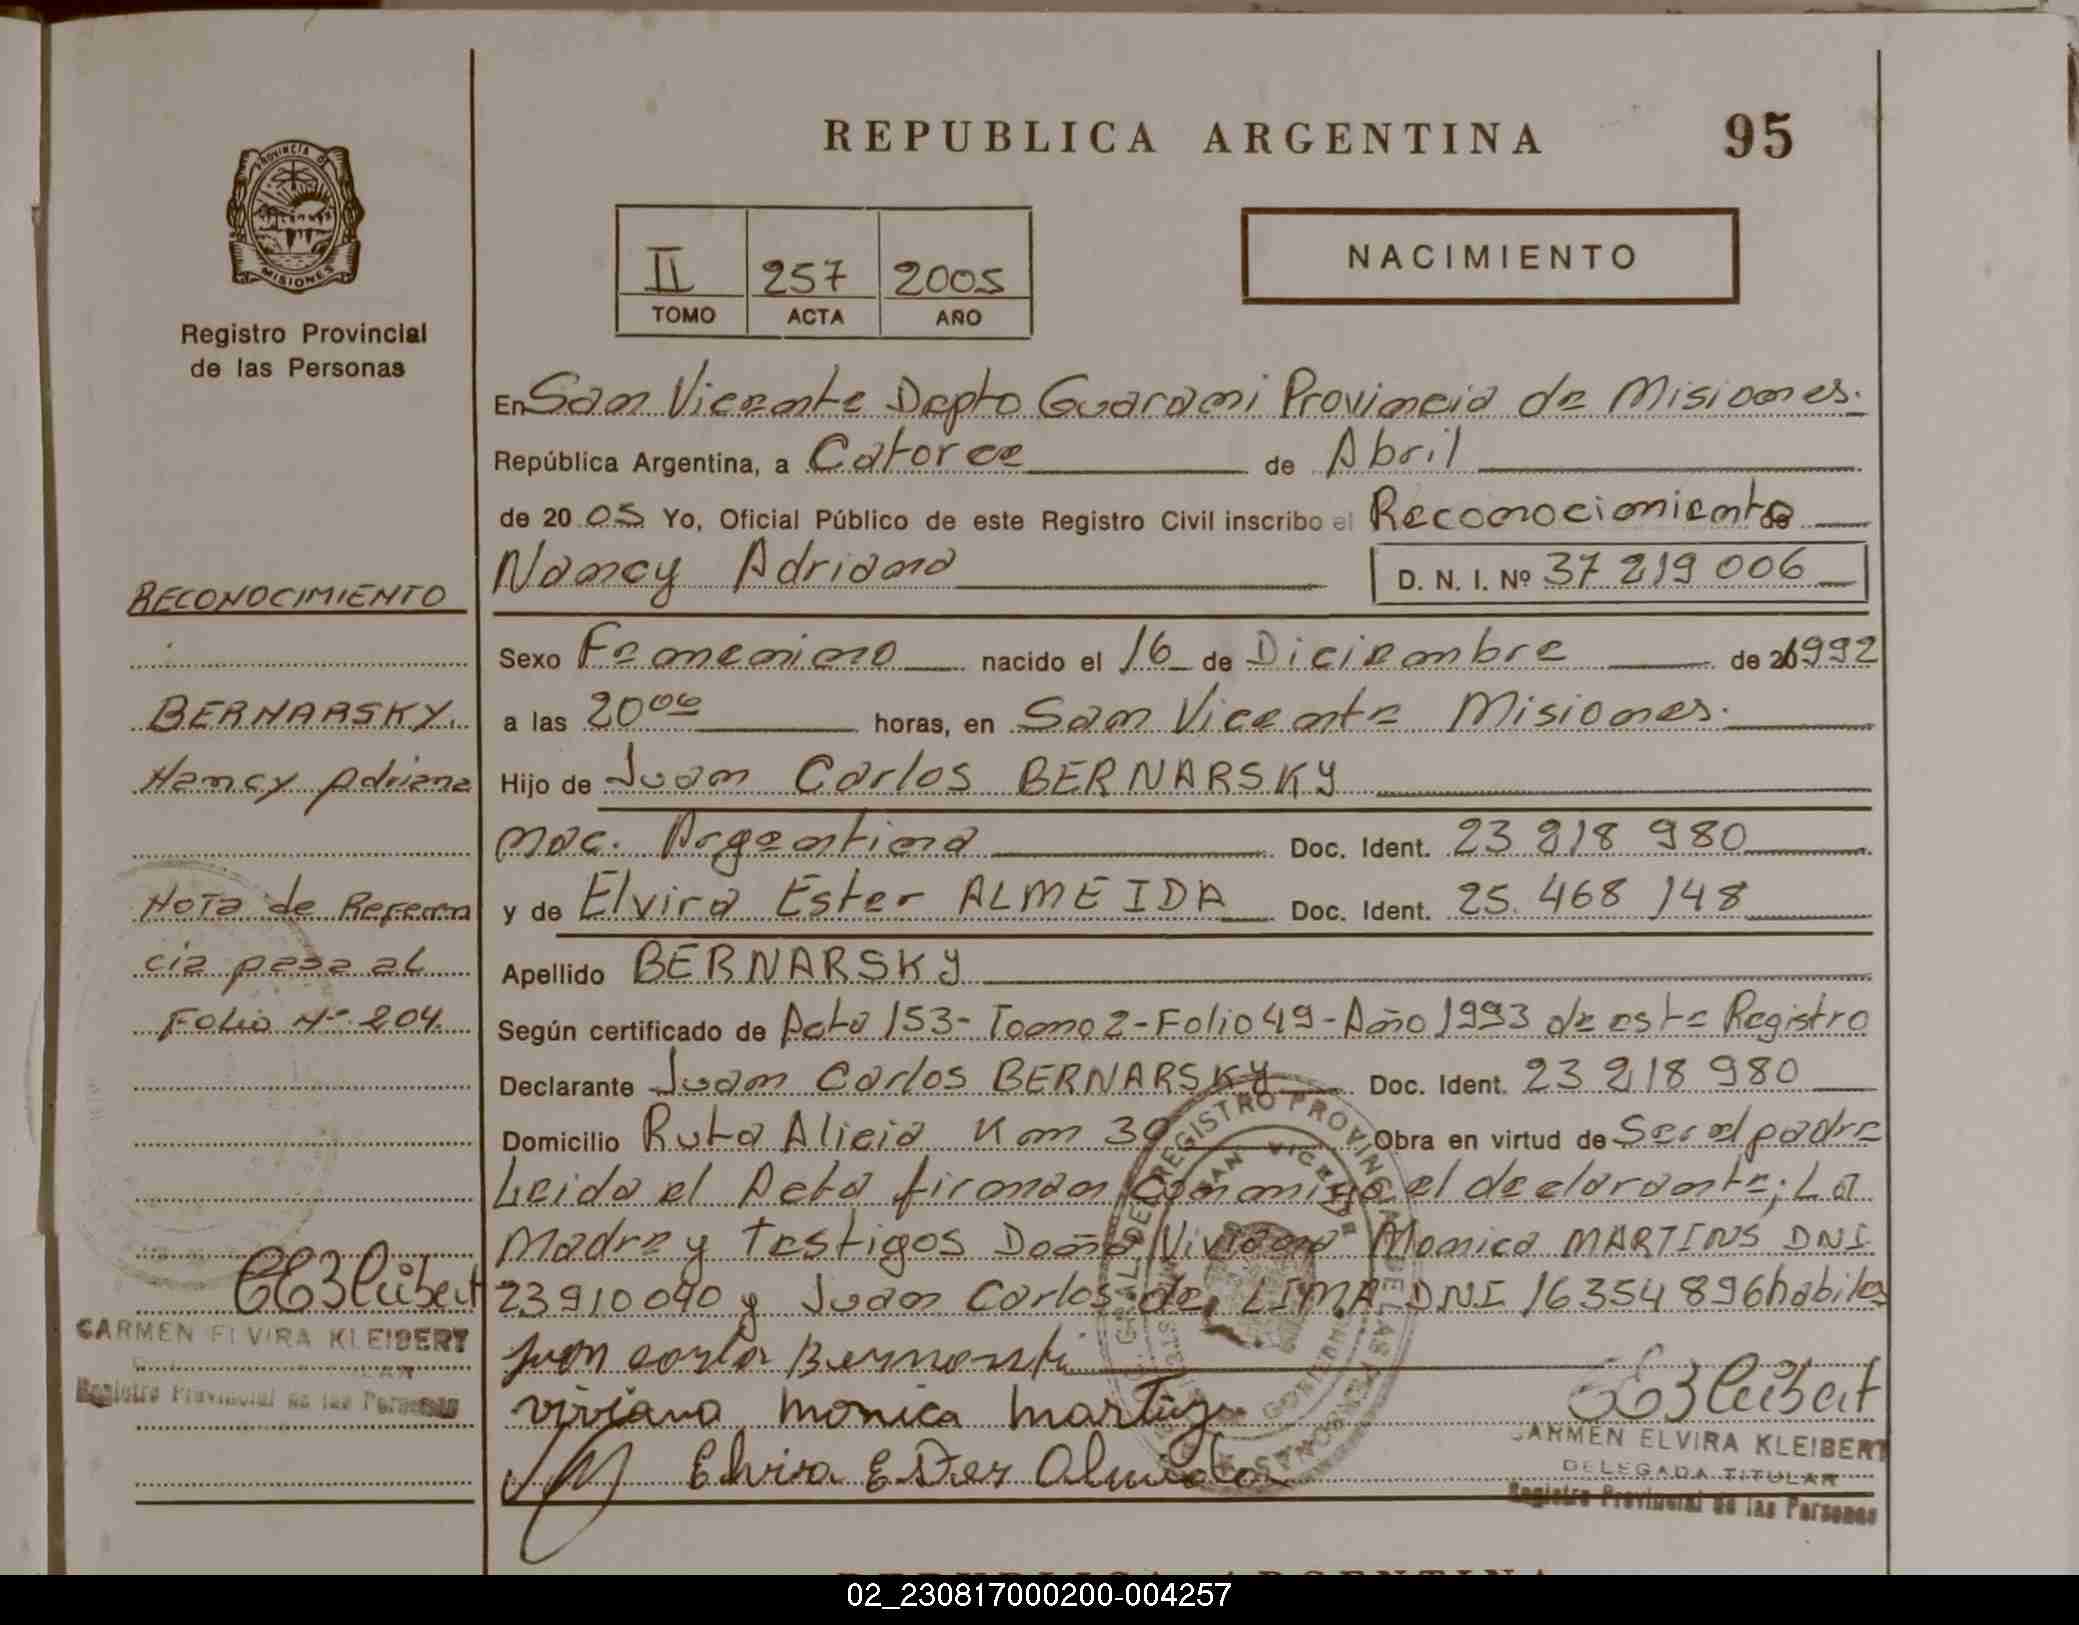 REPUBLICA ARGENTINA
95
PROVINCIA DE
MISIONES
Registro Provincial
de las Personas
II 257 2005
TOMO ACTA AÑO
NACIMIENTO
En San Vicente Depto Guarani Provincia de Misiones.
República Argentina, a Catorce de Abril
de 20 05 Yo, Oficial Público de este Registro Civil inscribo el Reconocimiento de
Nancy Adriana D. N. I. Nº 37 219 006
Sexo Femenino nacido el 16 de Diciembre de 1992
a las 20 00 horas, en San Vicente Misiones.
Hijo de Juan Carlos BERNARSKY
nac. Argentina Doc. Ident. 23 218 980
y de Elvira Ester ALMEIDA Doc. Ident. 25.468 148
Apellido BERNARSKY
Según certificado de Acta 153- Tomo 2-Folio 49-Año 1993 de este Registro
Declarante Juan Carlos BERNARSKY Doc. Ident. 23 218 980
Domicilio Ruta Alicia Km 30 Obra en virtud de Ser el padre
Leida el Acta firman conmigo el declarante; La
Madre y Testigos Doña Viviana Monica MARTINS DNI
23910040 y Juan Carlos de LIMA DNI 16354896 habiles
viviana monica martins
Elvira Ester Almeida
CARMEN ELVIRA KLEIBERT
DELEGADA TITULAR
Registro Provincial de las Personas
RECONOCIMIENTO
BERNARSKY.
Nancy Adriana
Nota de Referen
cia pasa al
Folio Nº 204.
CARMEN ELVIRA KLEIBERT
Registro Provincial de las Personas
REPUBLICA ARGENTINA
02_230817000200-004257